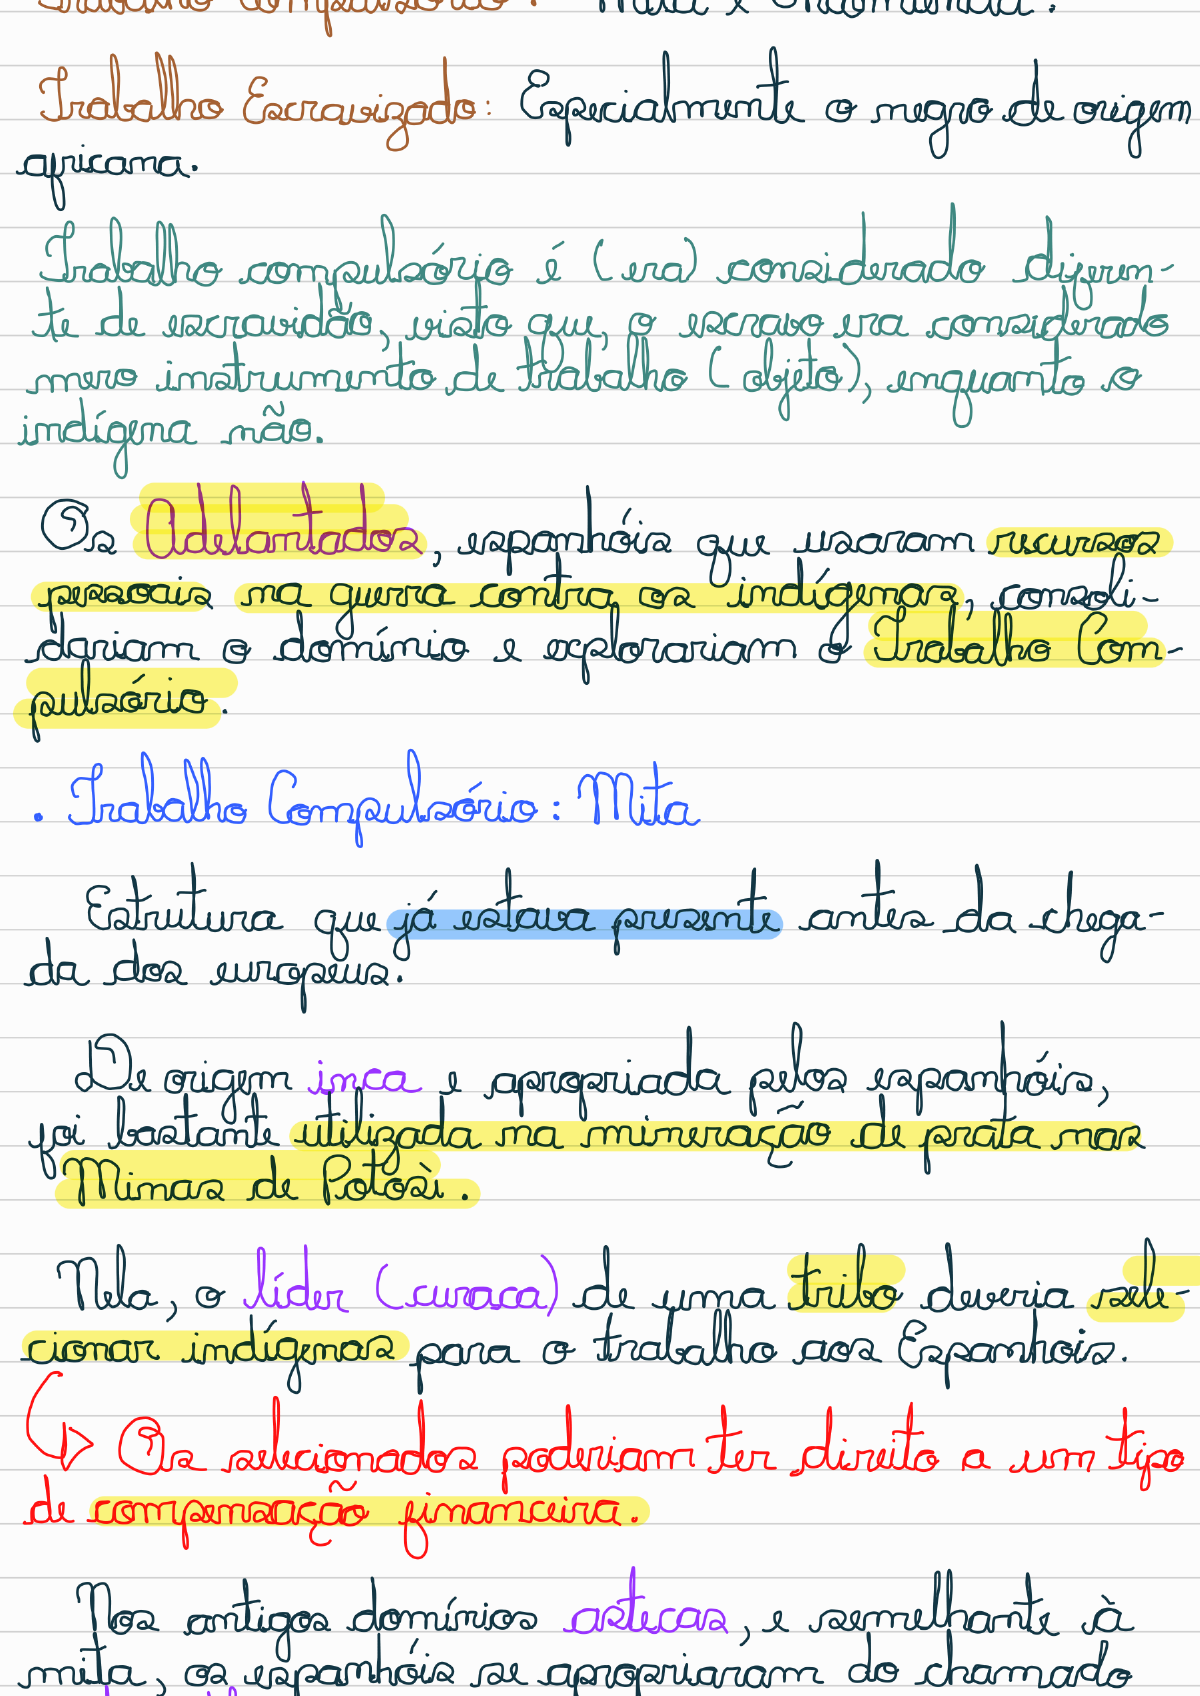 Trabalho Compulsório: Mita e Encomienda.
Trabalho Escravizado: Especialmente o negro de origem
africana.
Trabalho compulsório é (era) considerado diferen-
te de escravidão, visto que, o escravo era considerado
mero instrumento de trabalho (objeto), enquanto o
indígena não.
Os Adelantados, espanhóis que usaram recursos
pessoais na guerra contra os indígenas, consoli-
dariam o domínio e explorariam o Trabalho Com-
pulsório.
. Trabalho Compulsório: Mita
Estrutura que já estava presente antes da chega-
da dos europeus.
De origem inca e apropriada pelos espanhóis,
foi bastante utilizada na mineração de prata nas
Minas de Potosì.
Nela, o líder (curaca) de uma tribo deveria sele-
cionar indígenas para o trabalho aos Espanhois.
Os selecionados poderiam ter direito a um tipo
de compensação financeira.
Nos antigos domínios astecas, e semelhante à
mita, os espanhóis se apropriaram do chamado